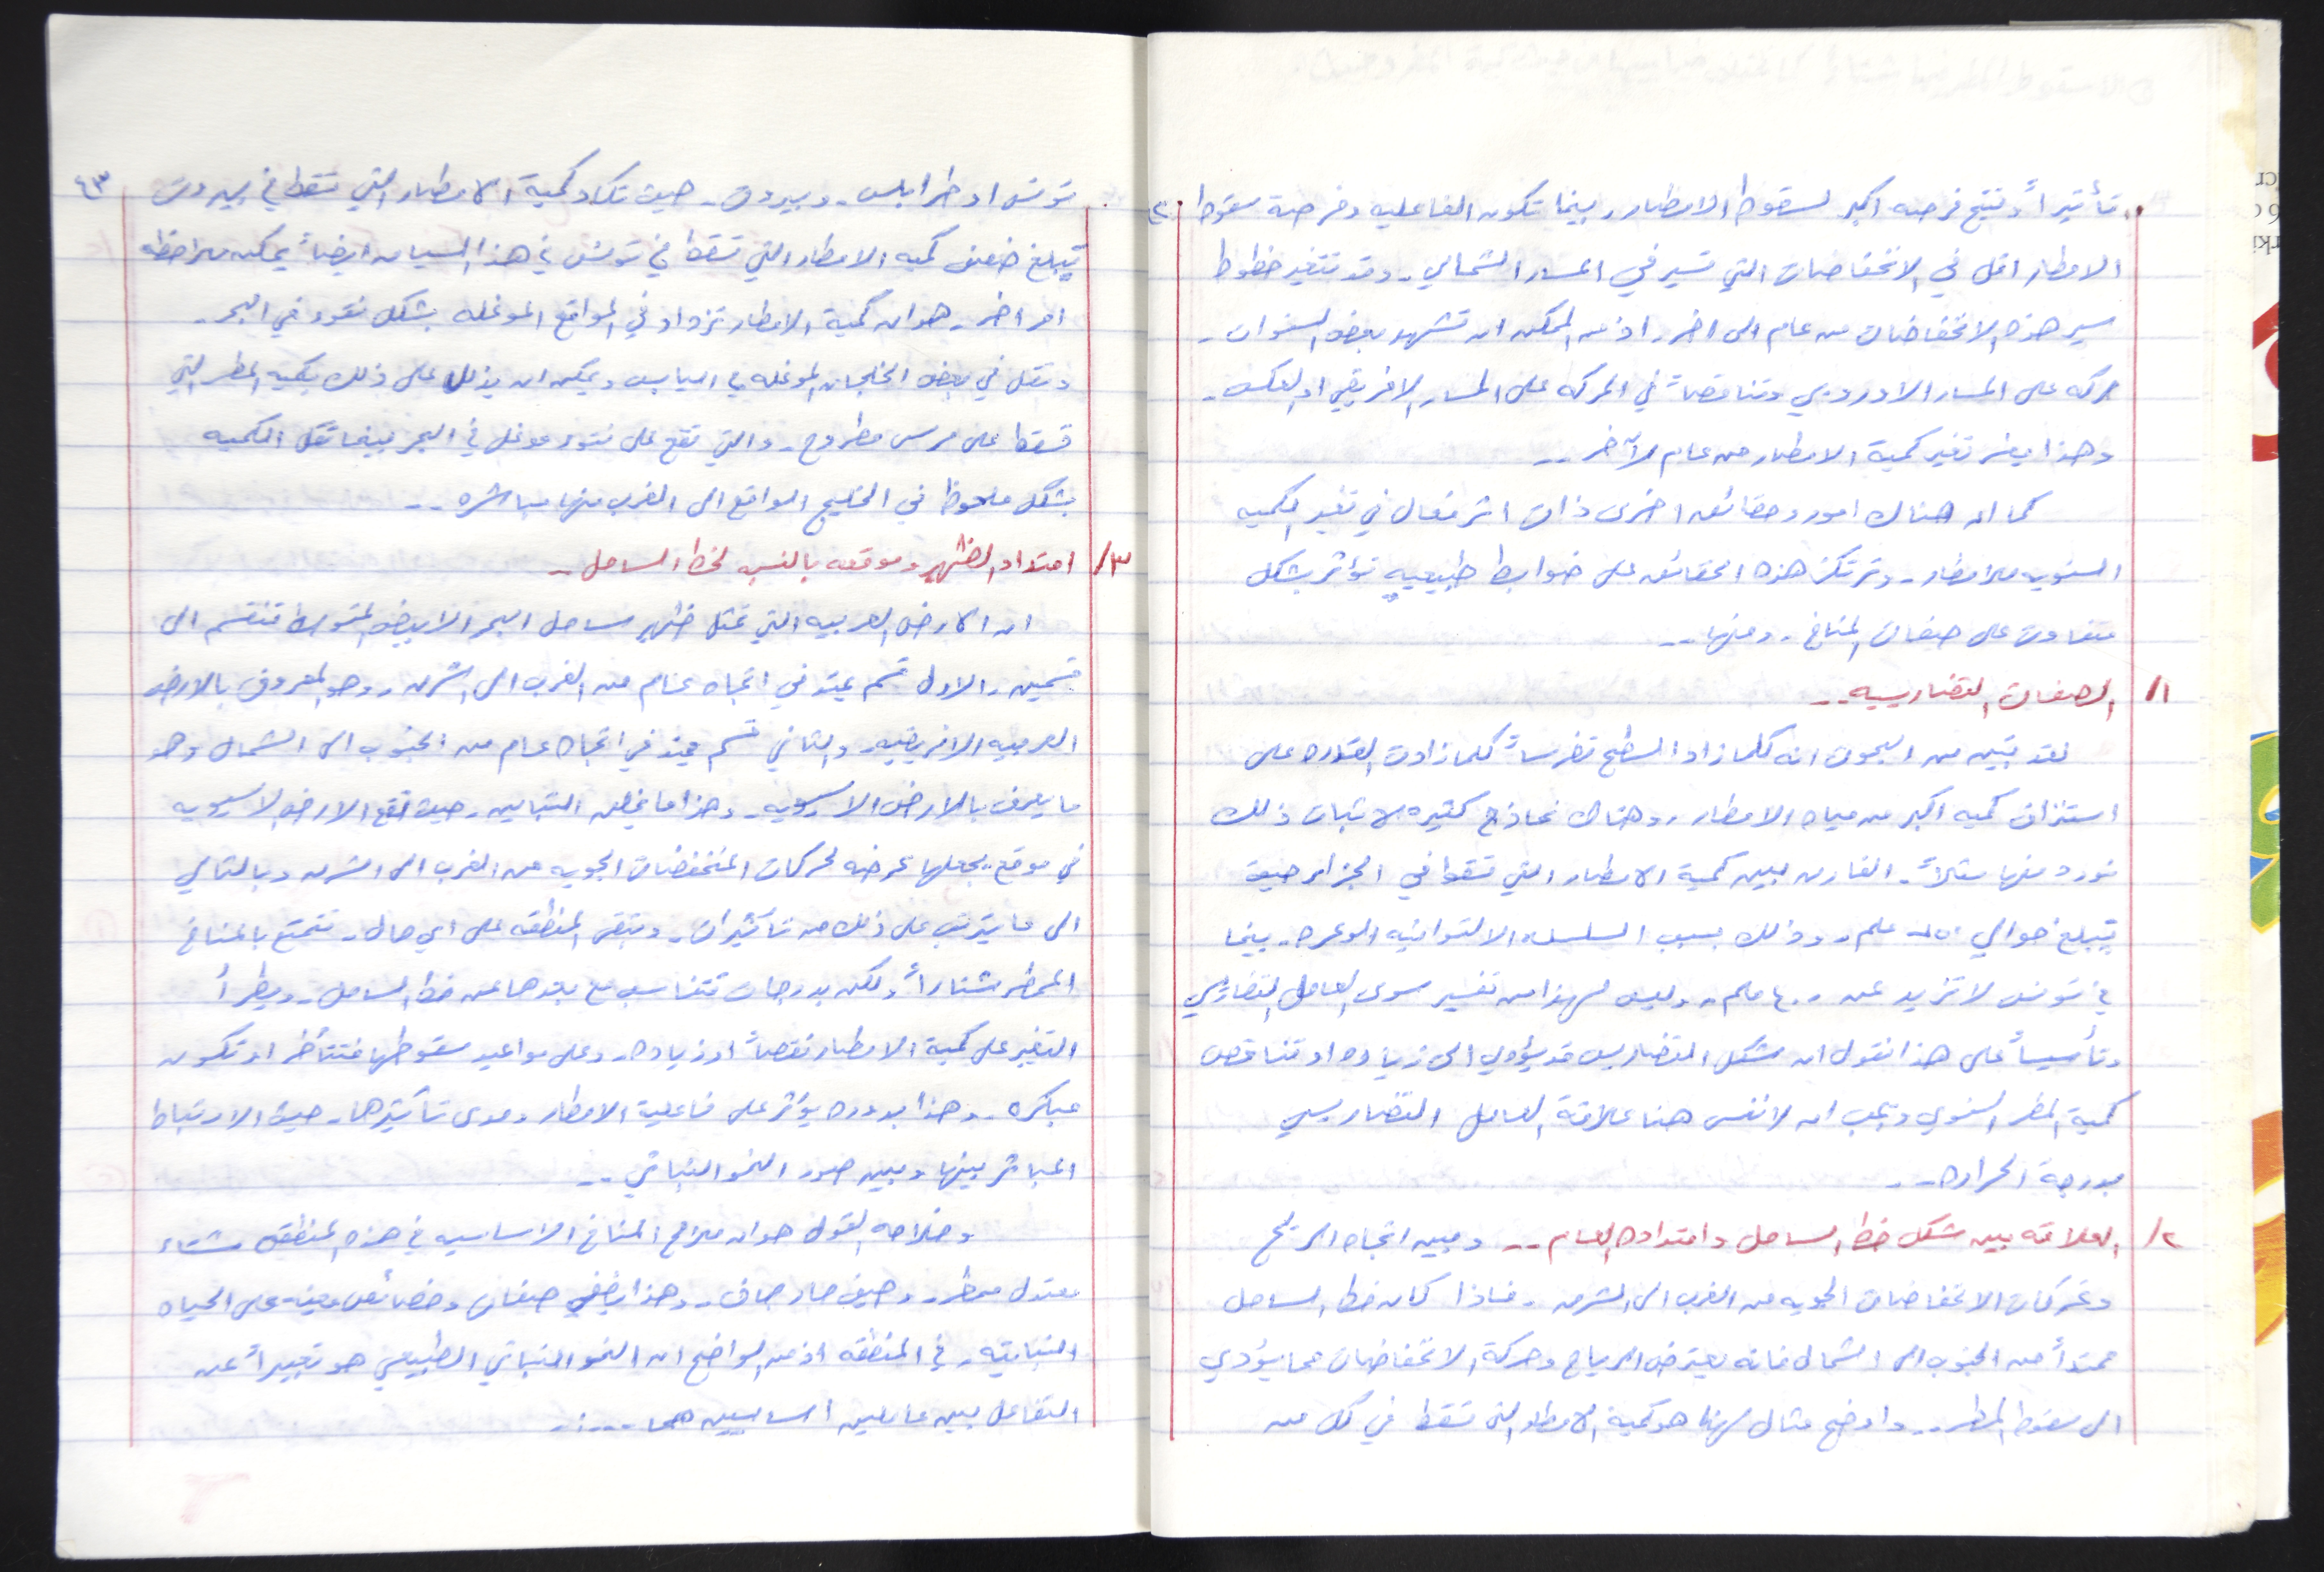 تأثيراً وتتيح فرصه اكبر لسقوط الامطار. بينما تكون الفاعليه وفرصة سقوط
الامطار اقل في الانخفاضات التي تسير في المسار الشمالي. وقد تتغير خطوط
سير هذه الانخفاضات من عام الى اخر. اذ من الممكن ان تشهد بعض السنوات.
حركه على المسار الاوروبي وتناقصاً في الحركه على المسار الافريقي او العكس.
وهذا يفسر تغير كمية الامطار من عام لآخر..
كما ان هناك امور وحقائق اخرى ذات اثر فعال في تغير الكميه
السنويه للامطار. وترتكز هذه الحقائق على ضوابط طبيعيه تؤثر بشكل
متفاوت على صفات المناخ. ومنها..
١/ الصفات التضاريسيه..
لقد تبين من البحوث انه كلما زاد السطح تضرساً كلما زادت القدره على
استنزاف كميه اكبر من مياه الامطار. وهناك نماذج كثيره لاثبات ذلك
نورد منها مثلاً. الفارق بين كمية الامطار التي تسقط في الجزائر حيث
تبلغ حوالي ٧٥٠ ملم. وذلك بسبب السلسله الالتوائيه الوعره. بينما
في تونس لا تزيد عن ٤٠٠ ملم. وليس لهذا من تفسير سوى العامل التضاريسي
وتأسيساً على هذا نقول ان شكل التضاريس قد يؤدي الى زياده او تناقص
كمية المطر السنوي ويجب ان لا ننسى هنا علاقة العامل التضاريسي
بدرجة الحراره..
٢/ العلاقه بين شكل خط الساحل وامتداده العام.. وبين اتجاه الريح
وتحركات الانخفاضات الجويه من الغرب الى الشرق. فاذا كان خط الساحل
ممتداً من الجنوب الى الشمال فانه يعترض الرياح وحركة الانخفاضات مما يؤدي
الى سقوط المطر.. واوضح مثال لهذا هو كمية الامطار التي تسقط في كل من
٤٣
تونس او طرابلس. وبيروت. حيث تكاد كمية الامطار التي تسقط في بيروت
تبلغ ضعف كميه الامطار التي تسقط في تونس في هذا السياق ايضاً يمكن ملاحظه
امر اخر. هو ان كمية الامطار تزداد في المواقع الموغله بشكل نتوء في البحر.
وتقل في بعض الخلجان الموغله في اليابس ويمكن ان يدلل على ذلك بكميه المطر التي
تسقط على مرسى مطروح. والتي تقع على نتوء موغل في البحر بينما تقل الكميه
بشكل ملحوظ في الخليج الواقع الى الغرب منها مباشره..
٣/ امتداد الظهير وموقعه بالنسبه لخط الساحل..
ان الارض العربيه التي تمثل ظهير ساحل البحر الابيض المتوسط تنقسم الى
قسمين. الاول قسم يمتد في اتجاه عام من الغرب الى الشرق. وهو المعروف بالارض
العربيه الافريقيه. والثاني قسم يمتد في اتجاه عام من الجنوب الى الشمال وهو
ما يعرف بالارض الاسيويه. وهذا ما يخلق التباين. حيث تقع الارض الاسيويه
في موقع يجعلها عرضه لحركات المنخفضات الجويه من الغرب الى الشرق وبالتالي
الى ما يترتب على ذلك من تأثيرات. وتبقى المنطقه على اي حال. تتمتع بالمناخ
الممطر شتاءاً ولكن بدرجات تتناسب مع بعدها عن خط الساحل. ويطرأ
التغير على كمية الامطار نقصاً او زياده. وعلى مواعيد سقوطها فتتأخر او تكون
مبكره. وهذا بدوره يؤثر على فاعلية الامطار ومدى تأثيرها. حيث الارتباط
المباشر بينها وبين صور النمو النباتي..
وخلاصه القول هو ان ملامح المناخ الاساسيه في هذه المنطقه شتاء
معتدل ممطر. وصيف حار جاف. وهذا يضفي صفات وخصائص معينه على الحياه
النباتيه. في المنطقه اذ من الواضح ان النمو النباتي الطبيعي هو تعبيراً عن
التفاعل بين عاملين اساسيين هما....